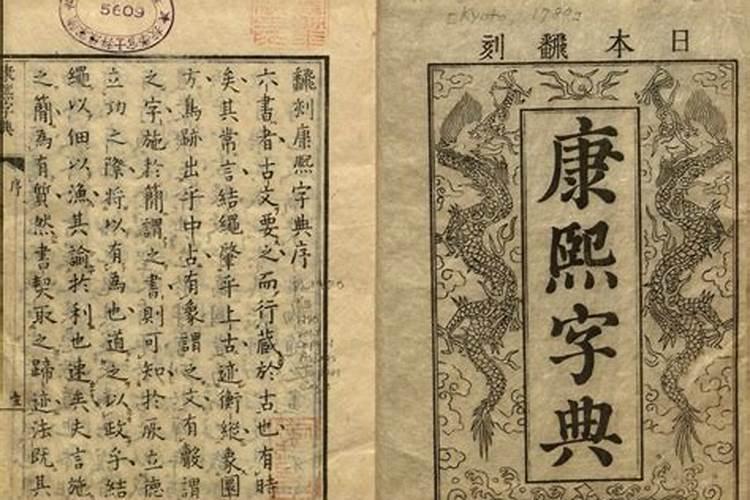 [Kyoto, 1780]
日本飜刻
康熙字典
飜刻康熙字典序
六書者古文要之而行藏於古也有時
矣其常言結繩肇乎上古迹衡縱象圖
方鳥跡出乎中古有象謂之文有聲謂
之字施於簡謂之書則可知於厥立德
立功之際將以有為也道之以政乎結
繩以佃以漁其諭於利也速矣夫言施
之簡為有質然書契取之蹄迹法既其
康熙字典
序
5609